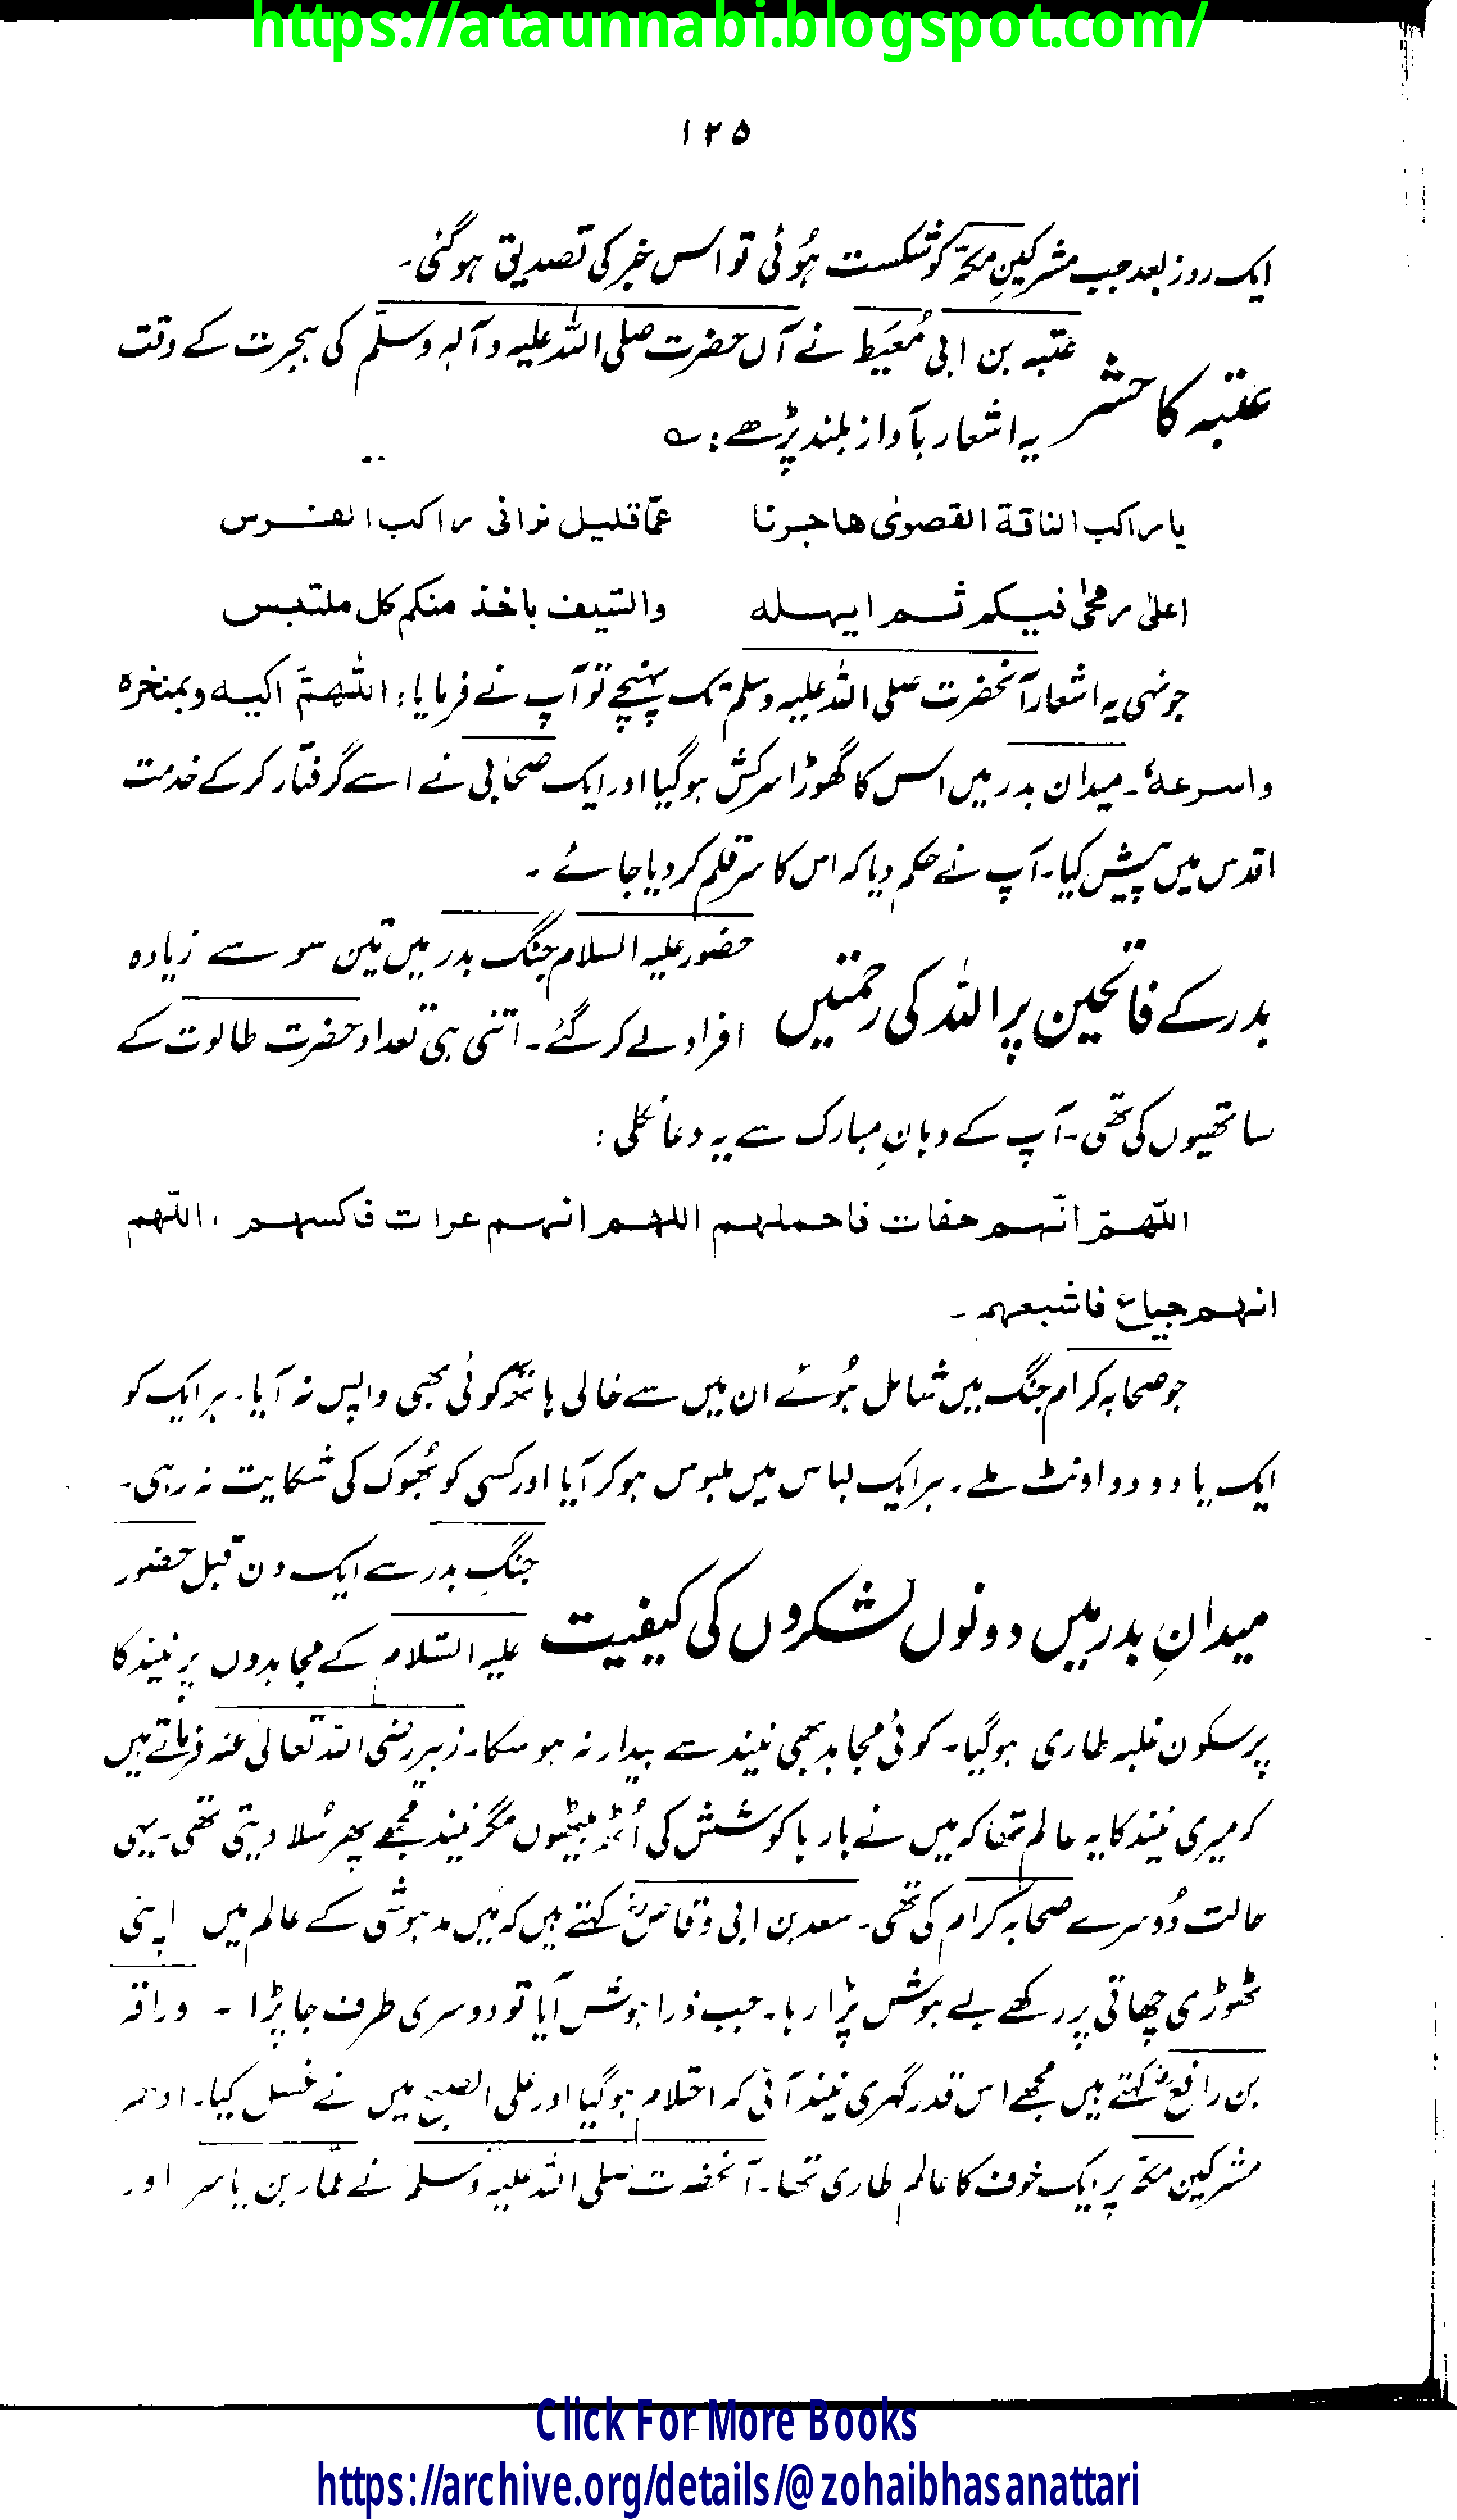 https://ataunnabi.blogspot.com/
۱۲۵
ایک روز بعد جب مشرکینِ مکہّ کو شکست ہُوئی تو اس خبر کی تصدیق ہوگئی۔
عتبہ کا حشر
عتبہ بن ابی مُعَیَط نے آں حضرت صلی اللہ علیہ وآلہٖ وسلّم کی ہجرت کے وقت
یہ اشعار بآواز بلند پڑھے : ؎
یا راکب الناقة القصویٰ ھاجرنا عمّا قلیل نرانی راکب الفرس
اعلیٰ رمحیٰ فیکم ثم ایہلہ والسّیف باخذ منکم کل ملتبس
جونہی یہ اشعار آنحضرت صلی اللہ علیہ وسلم تک پہنچے تو آپ نے فرمایا : اللّٰھمّ اکبہ وبمنخرہ
واسرعہٗ۔ میدان بدر میں اس کا گھوڑا سرکش ہوگیا اور ایک صحابی نے اسے گرفتار کرکے خدمت
اقدس میں پیش کیا۔ آپ نے حکم دیا کہ اس کا سر قلم کر دیا جائے ۔
بدر کے فاتحین پر اللہ کی رحمتیں
حضور علیہ السلام جنگ بدر میں تین سو سے زیادہ
افراد لے کر گئے ۔ اتنی ہی تعداد حضرت طالوت کے
ساتھیوں کی تھی۔ آپ کے دہانِ مبارک سے یہ دعا نکلی :
اللّٰھمّ انّہم حفات فاحملہم اللھم انہم عرات فاکسہم ، اللّٰھم
انہم جیاع فاشبعہم ۔
جو صحابہ کرام جنگ میں شامل ہُوئے ان میں سے خالی ہاتھ کوئی بھی واپس نہ آیا۔ ہر ایک کو
ایک یا دو دو اونٹ ملے ۔ ہر ایک لباس میں ملبوس ہوکر آیا اور کسی کو بھُوک کی شکایت نہ رہی۔
میدانِ بدر میں دونوں لشکروں کی کیفیت
جنگِ بدر سے ایک دن قبل حضور
علیہ السّلام کے مجاہدوں پر نیند کا
پرسکون غلبہ طاری ہوگیا۔ کوئی مجاہد بھی نیند سے بیدار نہ ہو سکا۔ زبیر رضی اللہ تعالیٰ عنہ فرماتے ہیں
کہ میری نیند کا یہ عالم تھا کہ میں نے بار ہا کوشش کی اُٹھ بیٹھوں مگر نیند مجھے پھر سُلا دیتی تھی۔ یہی
حالت دُوسرے صحابہ کرام کی تھی۔ سعد بن ابی وقاصؓ کہتے ہیں کہ مَیں مدہوشی کے عالم میں اپنی
ٹھوڑی چھاتی پر رکھے بے ہوش پڑا رہا۔ جب ذرا ہوش آیا تو دوسری طرف جا پڑا ۔ وراقہ
بن رافعؓ کہتے ہیں مجھے اس قدر گہری نیند آئی کہ احتلام ہوگیا اور علی الصبح میں نے غسل کیا۔ ادھر
مشرکینِ مکہّ پر ایک خوف کا عالم طاری تھا۔ آنحضرت صلی اللہ علیہ وسلم نے عمّار بن یاسر اور
Click For More Books
https://archive.org/details/@zohaibhasanattari